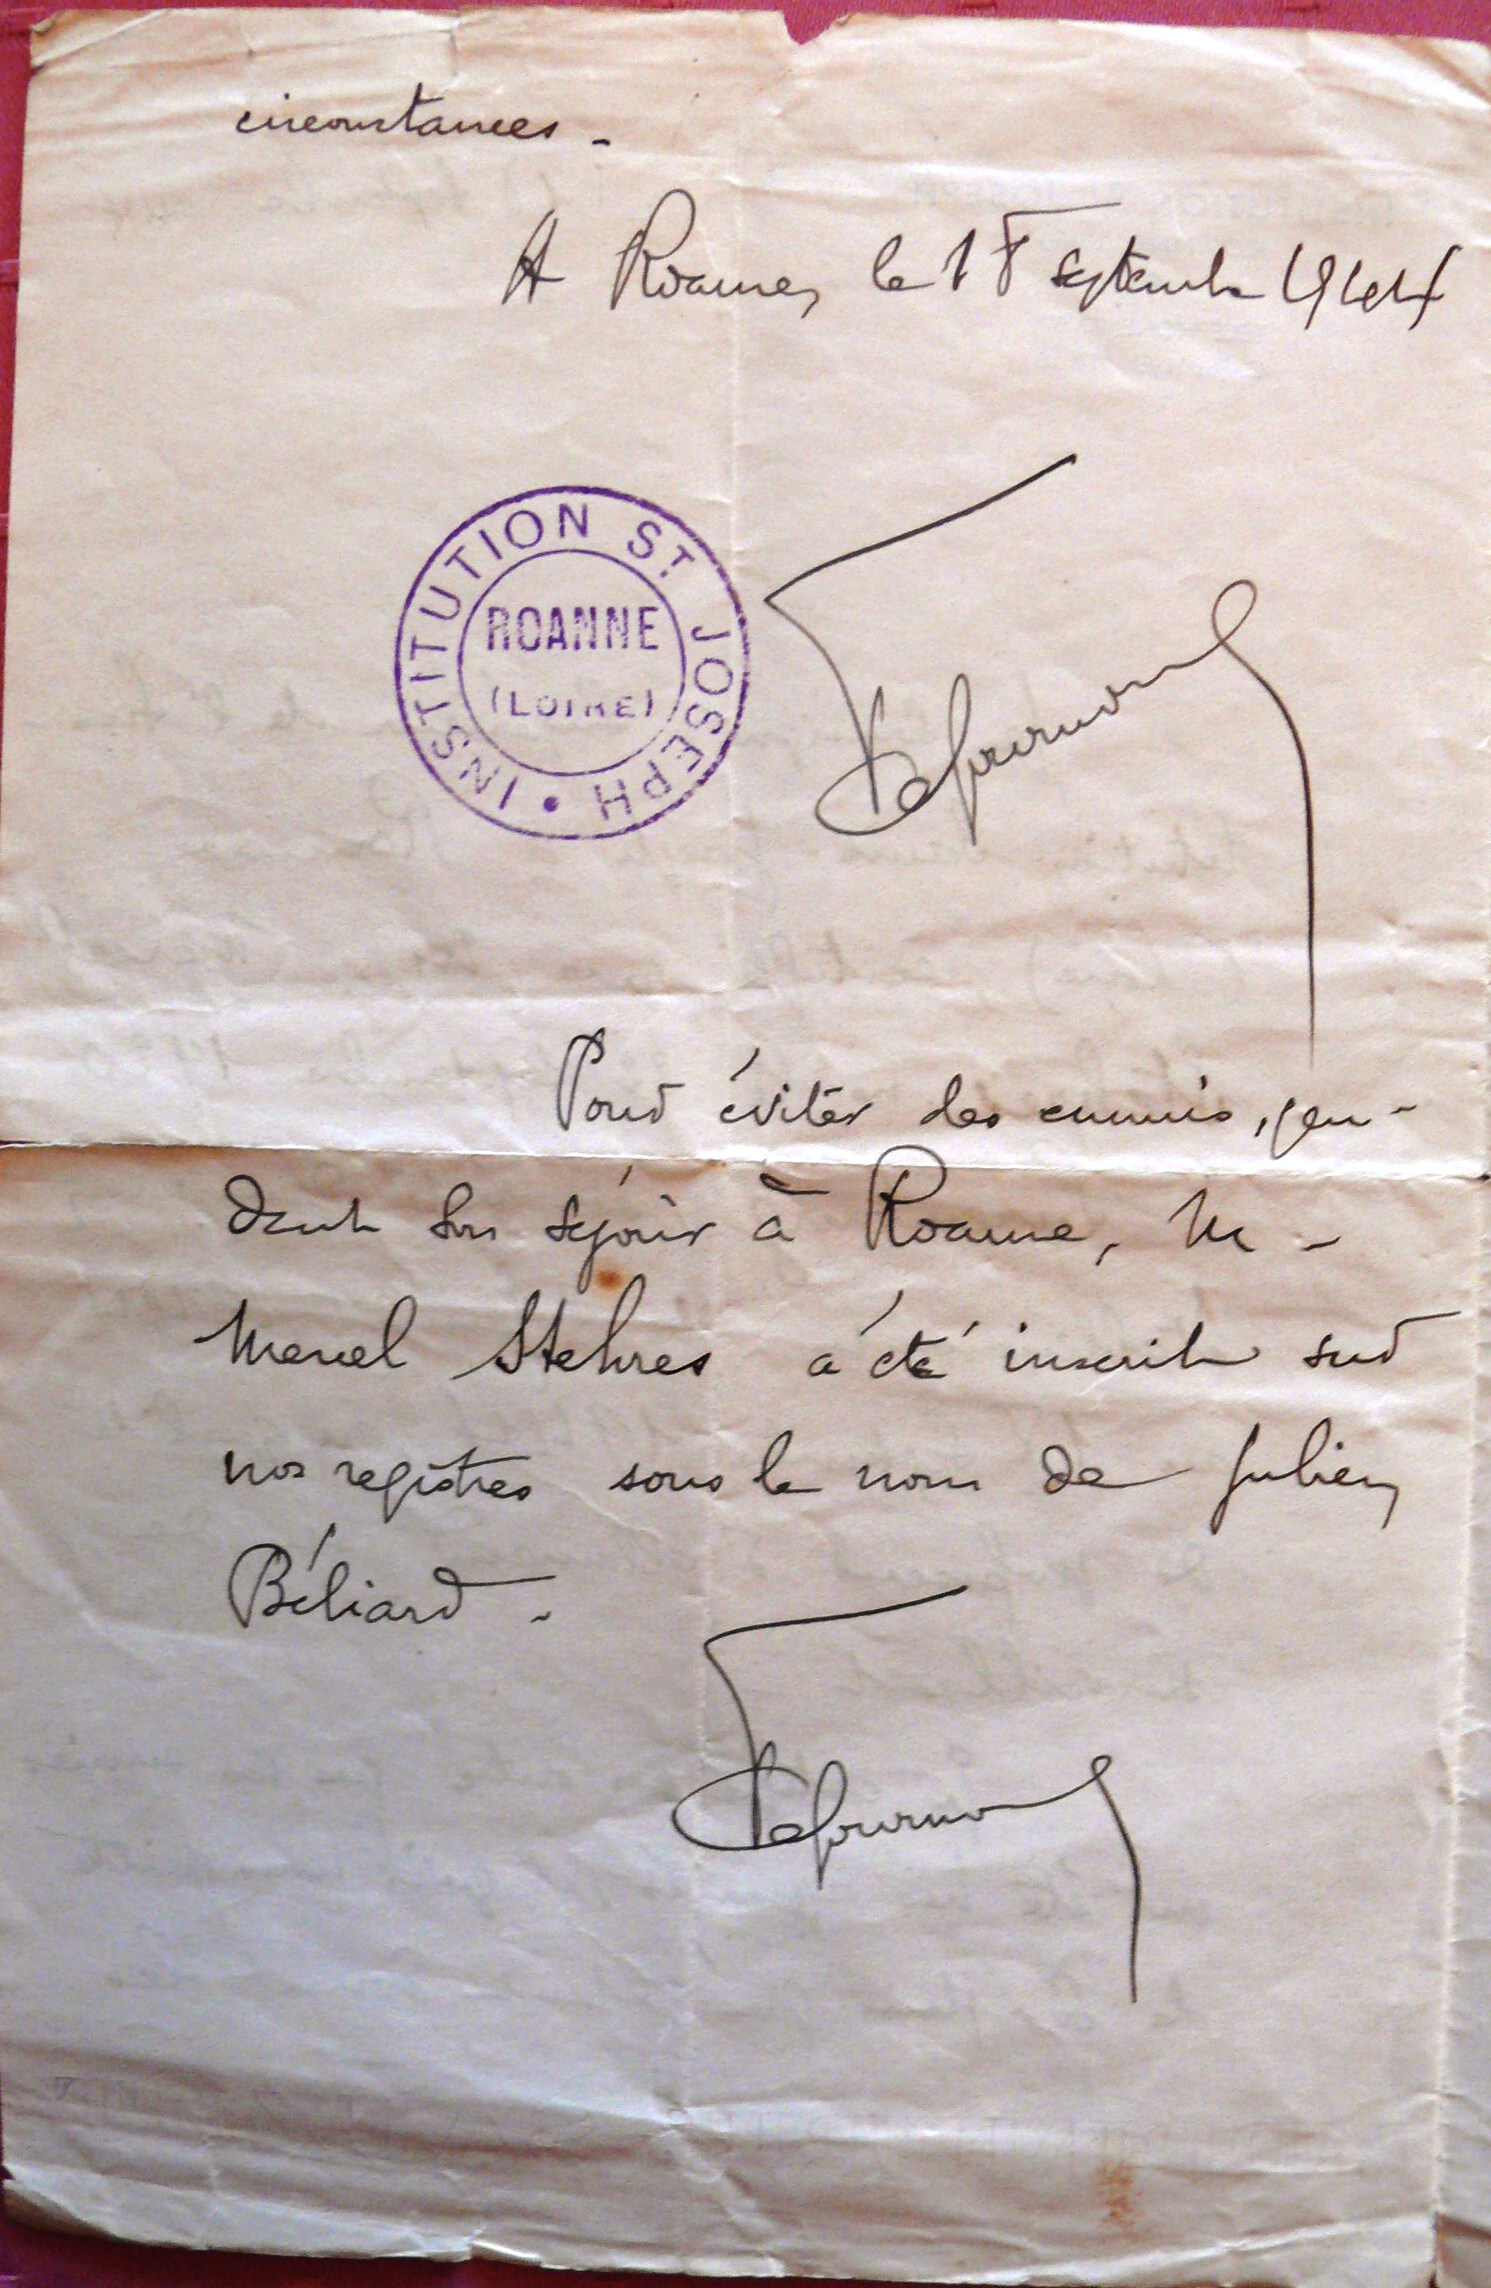 circonstances -
A Roanne, le 18 septembre 1944
INSTITUTION ST. JOSEPH
ROANNE
(LOIRE)
Pour éviter des ennuis, pen-
dant son séjour à Roanne, M -
Marcel Stehres a été inscrit sur
nos registres sous le nom de Julien
Béliard -